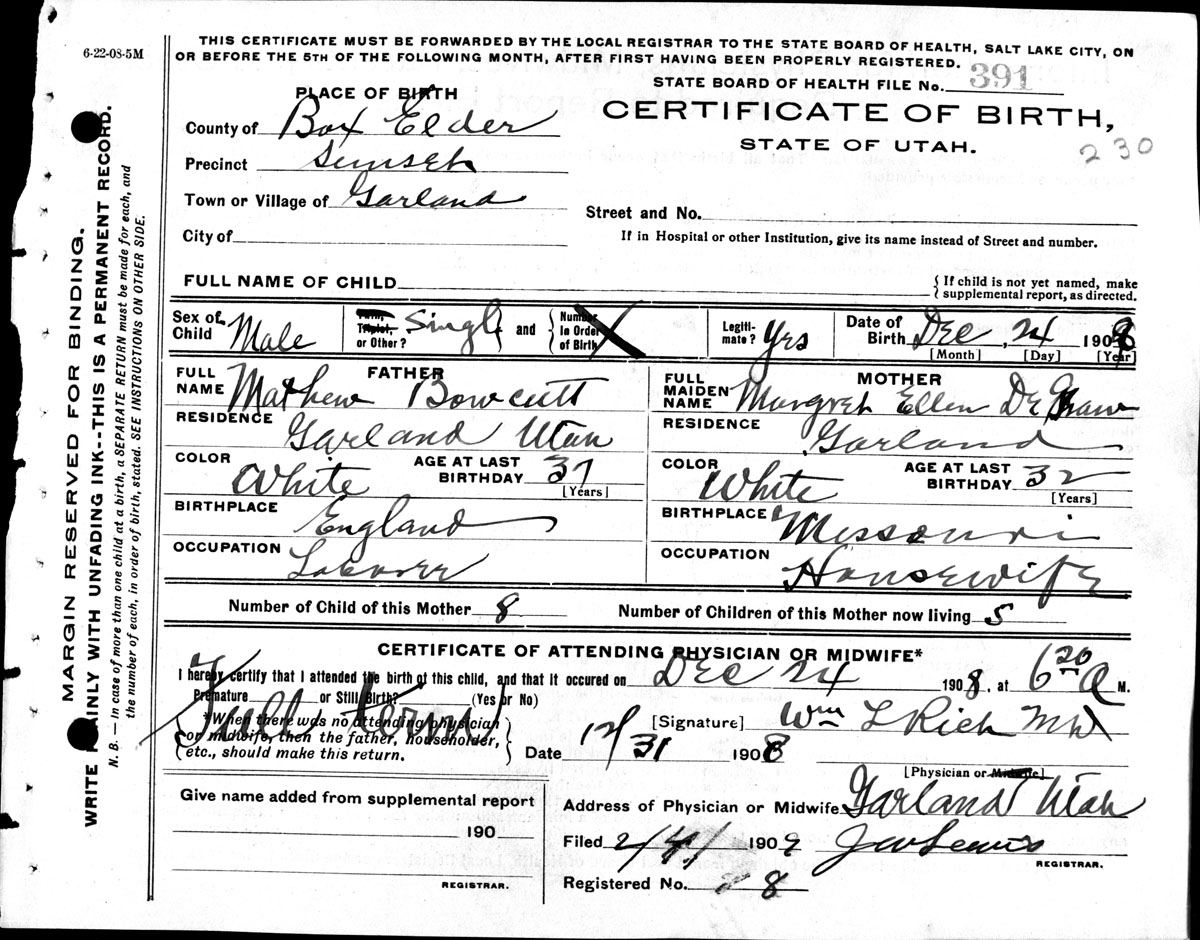 6-22-08-5M
THIS CERTIFICATE MUST BE FORWARDED BY THE LOCAL REGISTRAR TO THE STATE BOARD OF HEALTH, SALT LAKE CITY, ON
OR BEFORE THE 5TH OF THE FOLLOWING MONTH, AFTER FIRST HAVING BEEN PROPERLY REGISTERED.
STATE BOARD OF HEALTH FILE No. 391
PLACE OF BIRTH
CERTIFICATE OF BIRTH,
STATE OF UTAH.
230
County of Box Elder
Precinct Sunset
Town or Village of Garland
Street and No.
City of
If in Hospital or other Institution, give its name instead of Street and number.
FULL NAME OF CHILD
{If child is not yet named, make
supplemental report, as directed.
Sex of Child Male
Twin, Triplet, or Other? Single and {Number In Order of Birth
Legiti-mate? Yes
Date of Birth Dec, 24 1908
[Month] [Day] [Year]
FATHER
FULL NAME Mathew Bowcutt
RESIDENCE Garland Utah
COLOR White AGE AT LAST BIRTHDAY 37
[Years]
BIRTHPLACE England
OCCUPATION Laborer
MOTHER
FULL MAIDEN NAME Margret Ellen DeGraw
RESIDENCE Garland
COLOR White AGE AT LAST BIRTHDAY 32
[Years]
BIRTHPLACE Missouri
OCCUPATION Housewife
Number of Child of this Mother 8 Number of Children of this Mother now living 5
CERTIFICATE OF ATTENDING PHYSICIAN OR MIDWIFE*
I hereby certify that I attended the birth of this child, and that it occured on Dec 24 1908, at 6 20 A M.
Premature or Still Birth? (Yes or No)
Full term
{*When there was no attending physician
or midwife, then the father, householder,
etc., should make this return.}
[Signature] Wm L Rich MD
Date 12/31 1908
[Physician or Midwife]
Give name added from supplemental report
190
REGISTRAR.
Address of Physician or Midwife Garland Utah
Filed 2/4/ 1909 J W Lewis
REGISTRAR.
Registered No. 8
MARGIN RESERVED FOR BINDING.
WRITE PLAINLY WITH UNFADING INK--THIS IS A PERMANENT RECORD.
N. B. — In case of more than one child at a birth, a SEPARATE RETURN must be made for each, and
the number of each, in order of birth, stated. SEE INSTRUCTIONS ON OTHER SIDE.